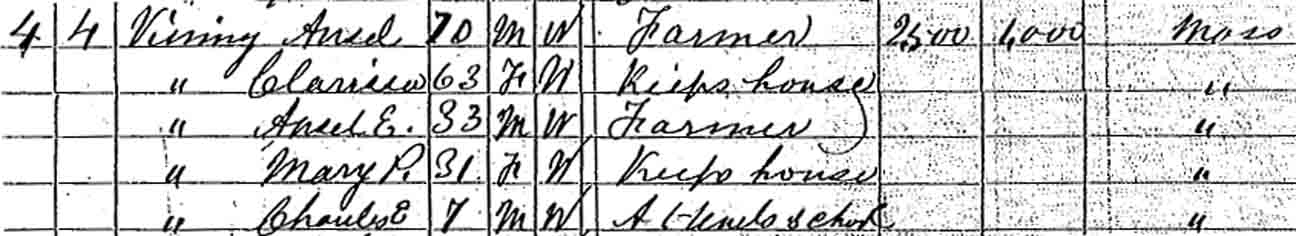 4 4 Vining Ansel 70 M W Farmer 2,500 1,000 Mass
" Clarissa 63 F W Keeps house "
" Ansel E. 33 M W Farmer "
" Mary P. 31 F W Keeps house "
" Charles E 7 M W Attends school "